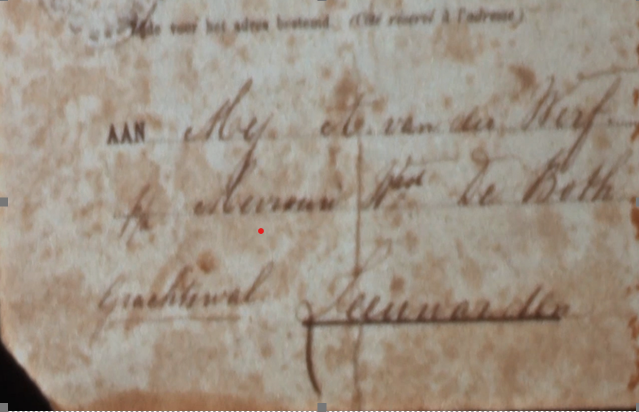 Zijde voor het adres bestemd. (Côté réservé à l'adresse)
AAN Mej A. van der Werf.
p/a Mevrouw Wed De Both
Grachtswal Leeuwarden